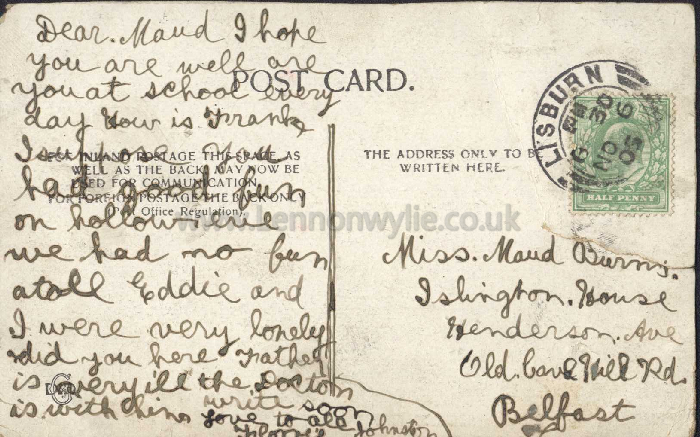 Dear. Maud I hope
you are well are
you at school every
day How is Frank
I suppose you
had good fun
on hollow eve
we had no fun
atall Eddie and
I were very lonely
did you here Father
is very ill the Doctor
is with him write soon
love to all
Johnston
POST CARD.
FOR INLAND POSTAGE THIS SPACE, AS
WELL AS THE BACK, MAY NOW BE
USED FOR COMMUNICATION.
FOR FOREIGN POSTAGE THE BACK ONLY
Post Office Regulation.
THE ADDRESS ONLY TO BE
WRITTEN HERE.
LISBURN
6 30 PM
NO 6
05
HALF PENNY
Miss. Maud Burns.
Islington. House
Henderson. Ave
Old. Cave Hill Rd.
Belfast
www.lennonwylie.co.uk